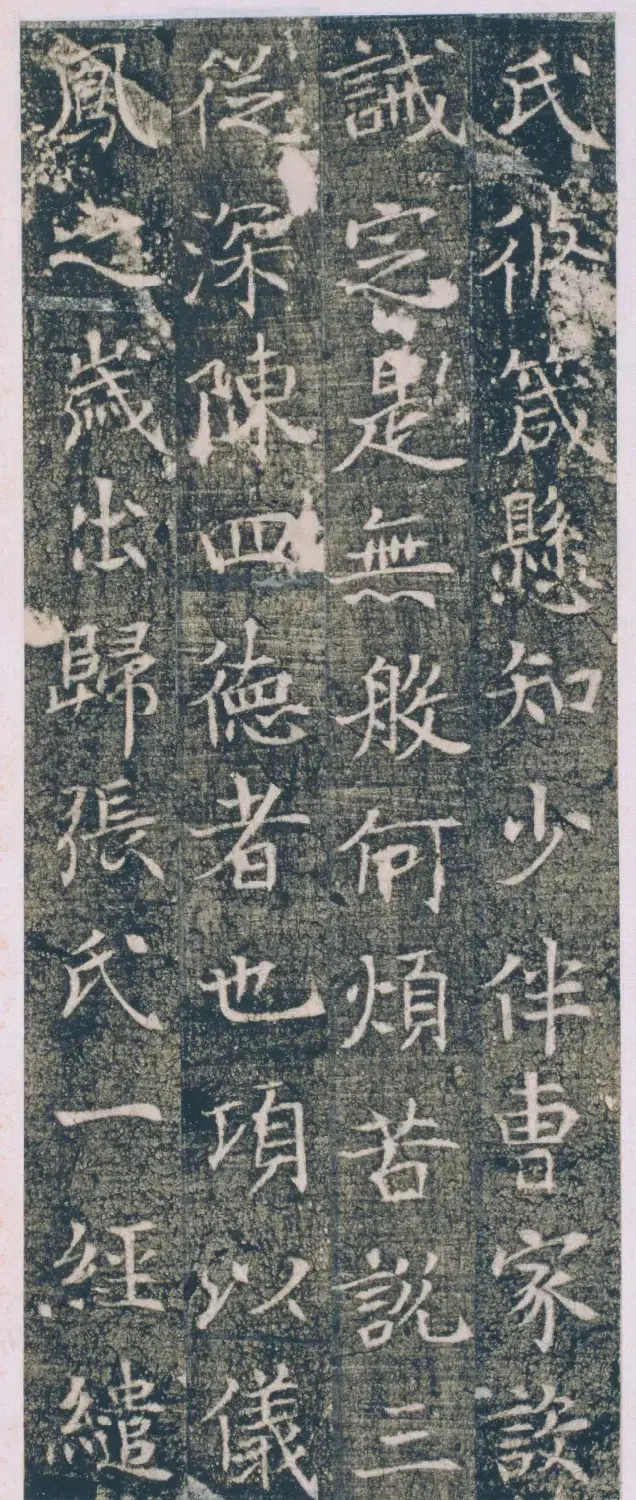 氏箴懸知少伴曹家設
誡定是無般何煩苦說三
從深陳四德者也項以儀
鳳之歲出歸張氏一經繾